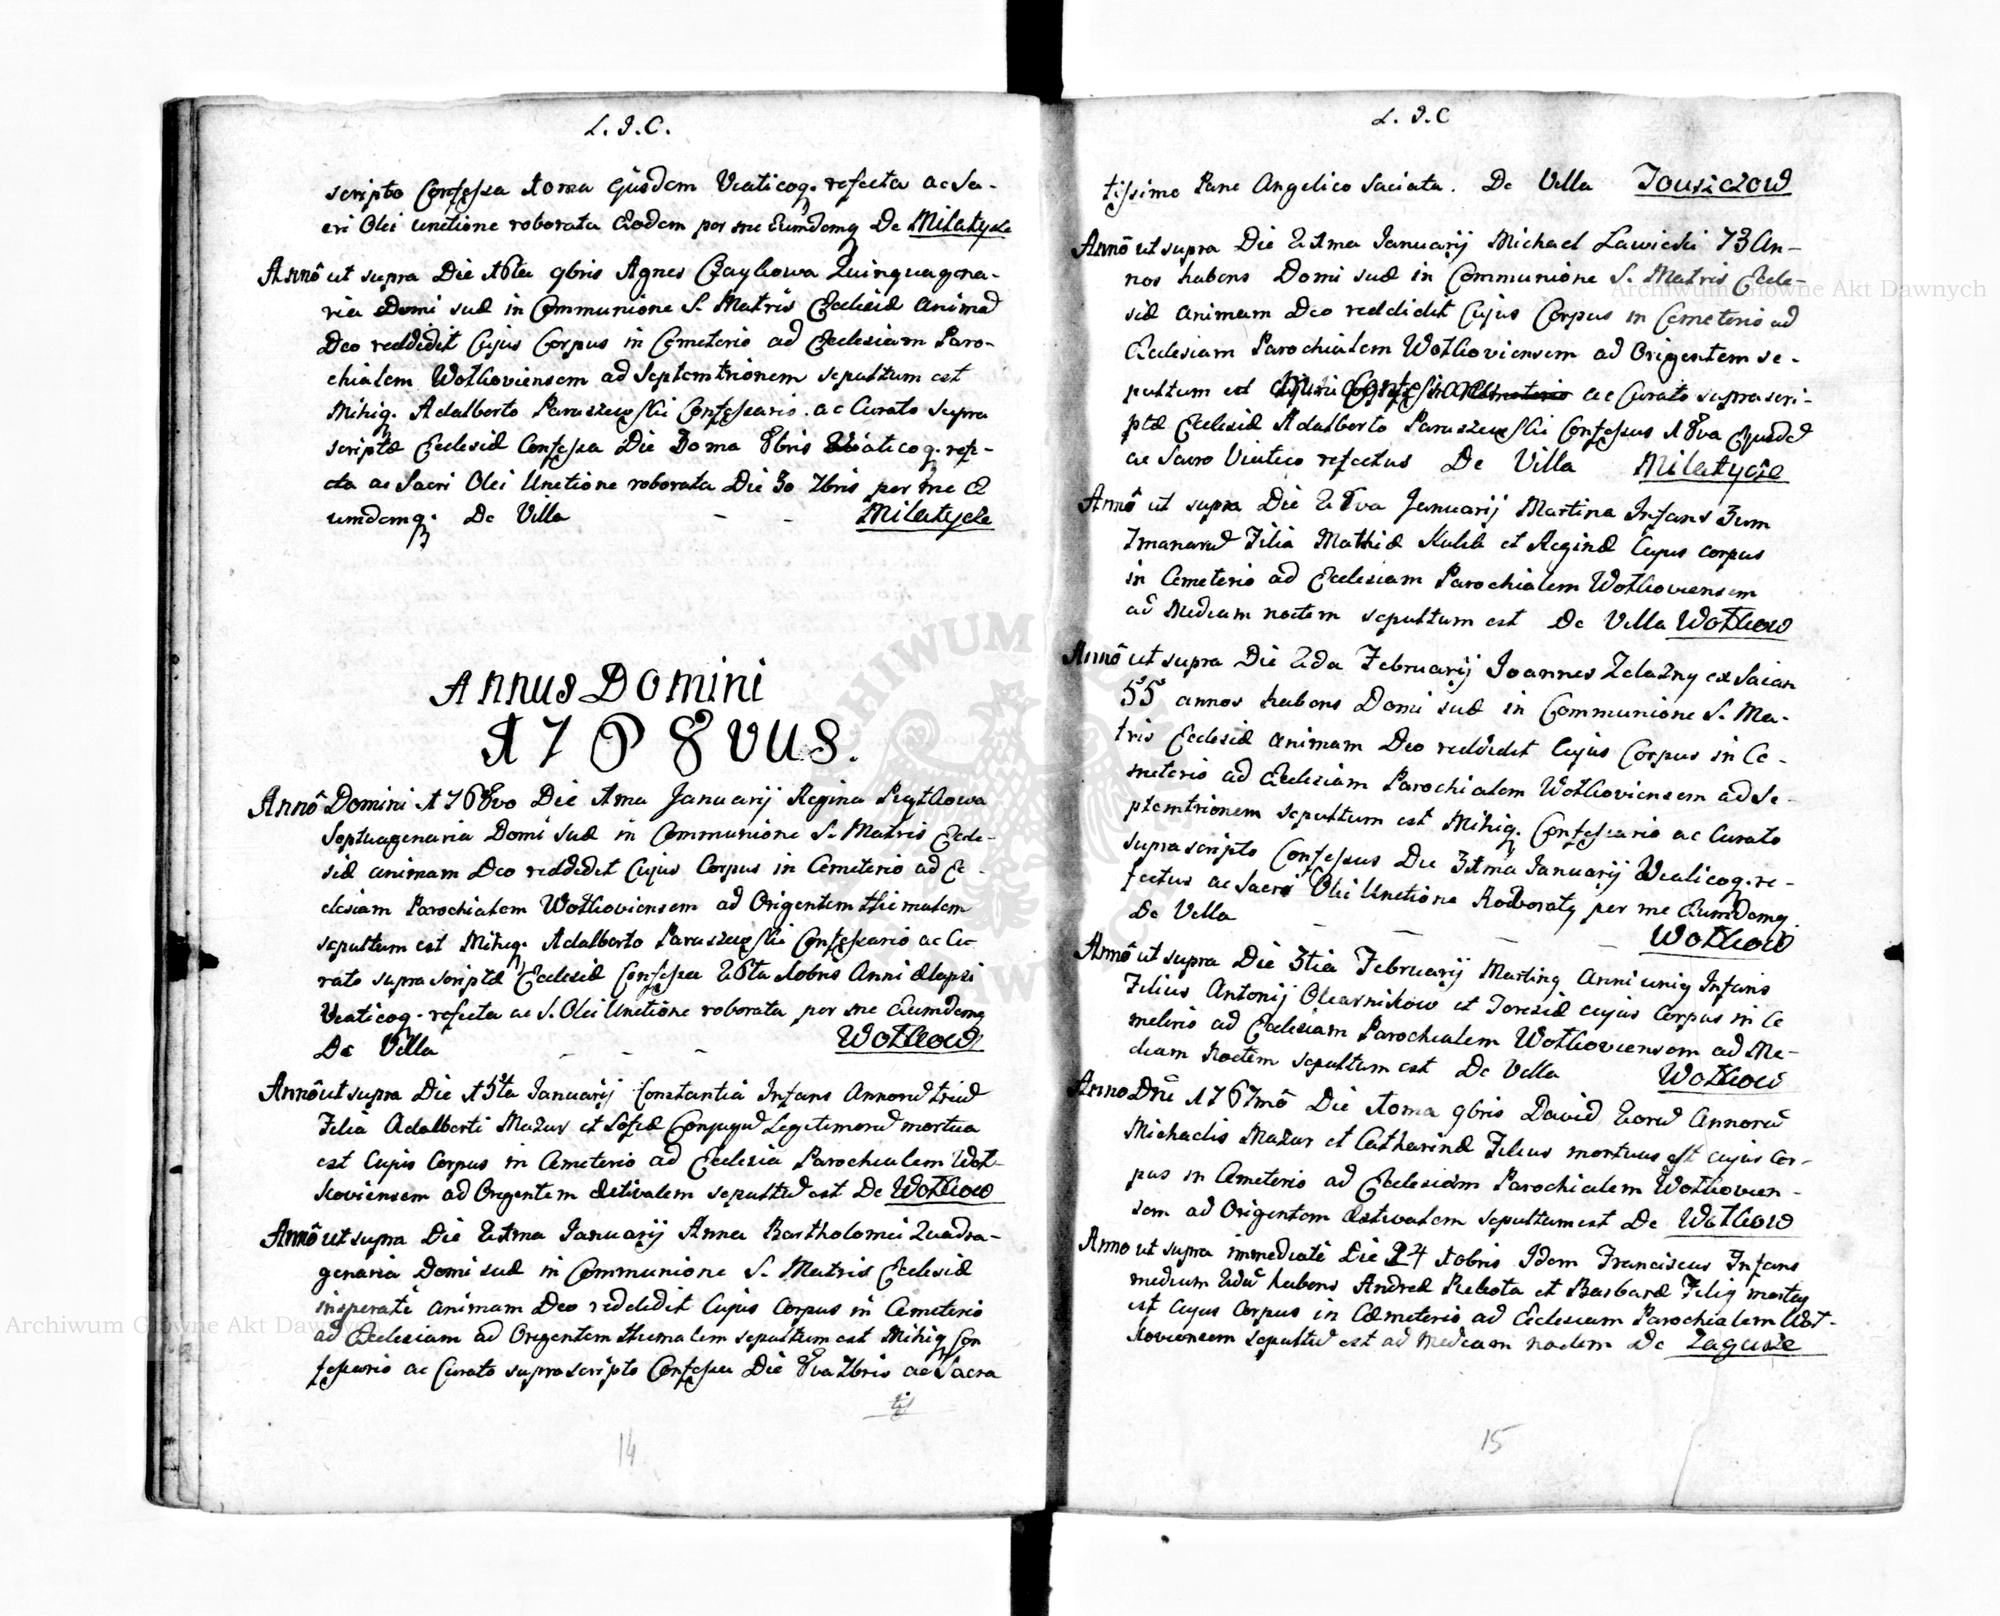 L. J. C.
scripto Confessa 10ma Ejusdem Viaticoq. refecta ac Sa-
cri Olei Unctione roborata Eodem per me Eumdemq De Milatycze
Annô ut supra Die 16ta 9bris Agnes Quinquagena-
ria Domi suæ in Communione S. Matris Ecclesiæ animã
Deo reddidit Cujus Corpus in Cemeterio ad Ecclesiam Paro-
chialem Wołkoviensem ad Septemtrionem sepultum est
Mihiq. Adalberto Paruszewski Confessario ac Curato supra
scriptæ Ecclesiæ Confessa Die 8bris Viaticoq. refe-
cta ac Sacri Olei Unctione roborata Die 30 7bris per me E
umdemq. De Villa - - Milatycze
Annus Domini
1768vus.
Annô Domini 1768vo Die 1ma Januarij Regina Pezytkowa
Septuagenaria Domi suæ in Communione S. Matris Eccle-
siæ animam Deo reddidit Cujus Corpus in Cemeterio ad Ec-
clesiam Parochialem Wołkoviensem ad Origentem Hiemalem
sepultum est Mihiq. Adalberto Paruszewski Confessario ac Cu-
rato suprascriptæ Ecclesiæ Confessa 26ta Xobris Anni elapsi
Viaticoq. refecta ac S. Olei Unctione roborata per me Eumdemq
De Villa - - - Wołkow
Annô ut supra Die 15ta Januarij Constantia Infans Annorũ triũ
Filia Adalberti Mazur et Sofiæ Conjugũ Legitimorũ mortua
est Cujus Corpus in Cemeterio ad Ecclesiã Parochialem Woł-
koviensem ad Origentem æstivalem sepultũ est De Wołkow
Annô ut supra Die 21ma Januarij Anna Bartholomei Quadra-
genaria Domi suæ in Communione S. Matris Ecclesiæ
insperatè animam Deo reddidit Cujus Corpus in Cemeterio
ad Ecclesiam ad Origentem Hiemalem sepultum est Mihiq Con
fessario ac Curato suprascripto Confessa Die 8va 7bris ac Sacra
tis
14
L. J. C
tissimo Pane Angelico Saciata. De Villa Towszczow
Annô ut supra Die 21ma Januarij Michael Lawicki 73 An-
nos habens Domi suæ in Communione S. Matris Eccle-
siæ animam Deo reddidit Cujus Corpus in Cemeterio ad
Ecclesiam Parochialem Wołkoviensem ad Origentem se-
pultum est ac Curato suprascri-
ptæ Ecclesiæ Adalberto Paruszewski Confessus 18va Ejusdẽ
ac Sacro Viatico refectus De Villa Milatycze
Annô ut supra Die 28va Januarij Martina Infans 3um
7manarũ Filia Mathiæ Kulik et Reginæ Cujus corpus
in Cemeterio ad Ecclesiam Parochialem Wołkoviensem
ad Mediam noctem sepultum est De Villa Wołkow
Annô ut supra Die 2da Februarij Joannes Zelazny ex Saian
55 annos habens Domi suæ in Communione S. Ma-
tris Ecclesiæ animam Deo reddidit Cujus Corpus in Ce-
meterio ad Ecclesiam Parochialem Wołkoviensem ad Se-
ptemtrionem sepultum est Mihiq. Confessario ac Curato
suprascripto Confessus Die 31ma Januarij Viaticoq. re-
fectus ac Sacri Olei Unctione per me Eumdemq.
De Villa - - - - Wołkow
Annô ut supra Die 3tia Februarij Martinq Anni uniq Infans
Filius Antonij Olearnikow et Teresiæ cujus Corpus in Ce
meterio ad Ecclesiam Parochialem Wołkoviensem ad Me-
diam Noctem sepultum est De Villa Wołkow
Anno Dnĩ 1767mô Die 10ma 9bris David 2orũ Annorũ
Michaelis Mazur et Catharinæ Filius mortuus est cujus Cor-
pus in Cemeterio ad Ecclesiam Parochialem Wołkovien-
sem ad Origentem Æstivalem sepultum est De Wołkow
Anno ut supra immediatè Die 24 Xobris Idem Franciscus Infans
medium habens Andreæ Rebota et Barbaræ Filiq mortuq
est Cujus Corpus in Cæmeterio ad Ecclesiam Parochialem Woł-
koviensem sepultũ est ad Mediam noctem De Zagurze
15
Archiwum Główne Akt Dawnych
Archiwum Główne Akt Dawnych